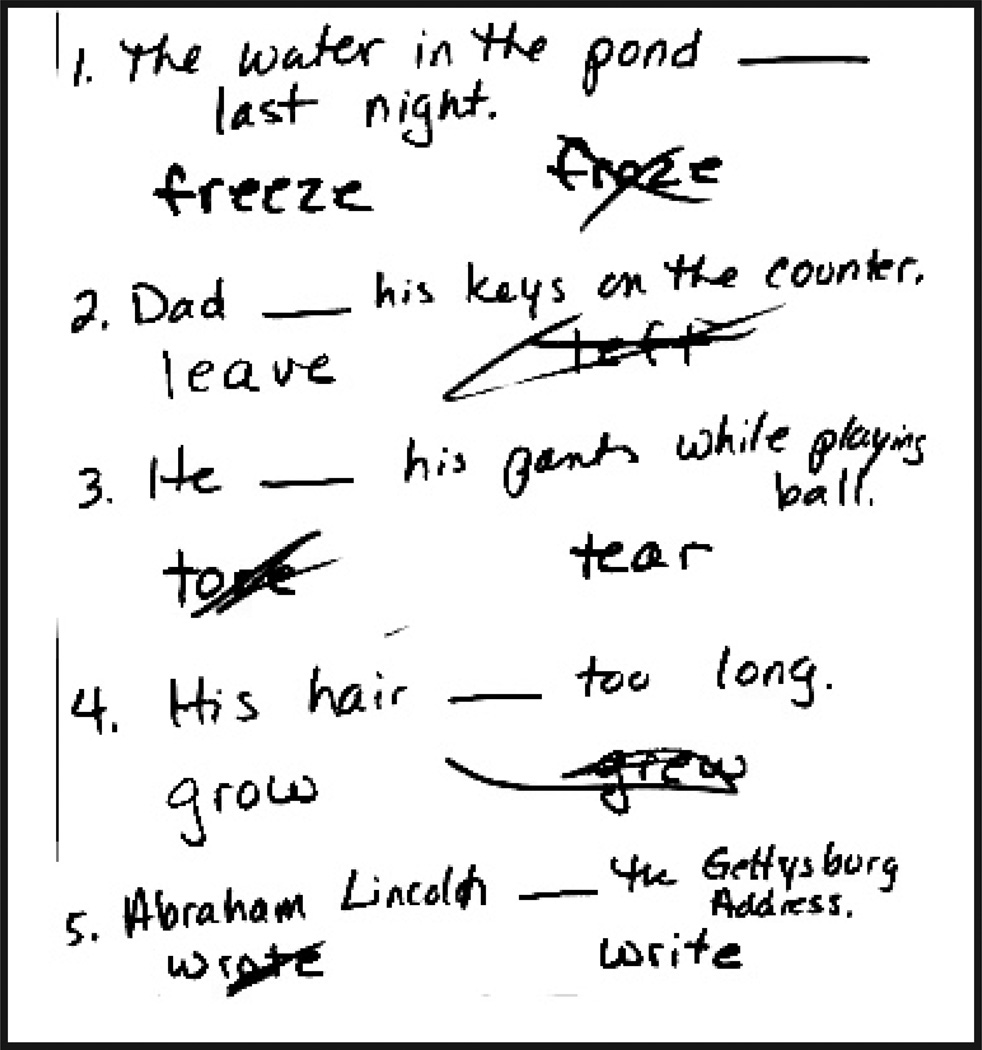 1. The water in the pond ____
last night.
freeze froze
2. Dad ____ his keys on the counter.
leave left
3. He ____ his pants while playing
ball.
tore tear
4. His hair ____ too long.
grow grew
5. Abraham Lincoln ____ the Gettysburg
Address.
wrote write